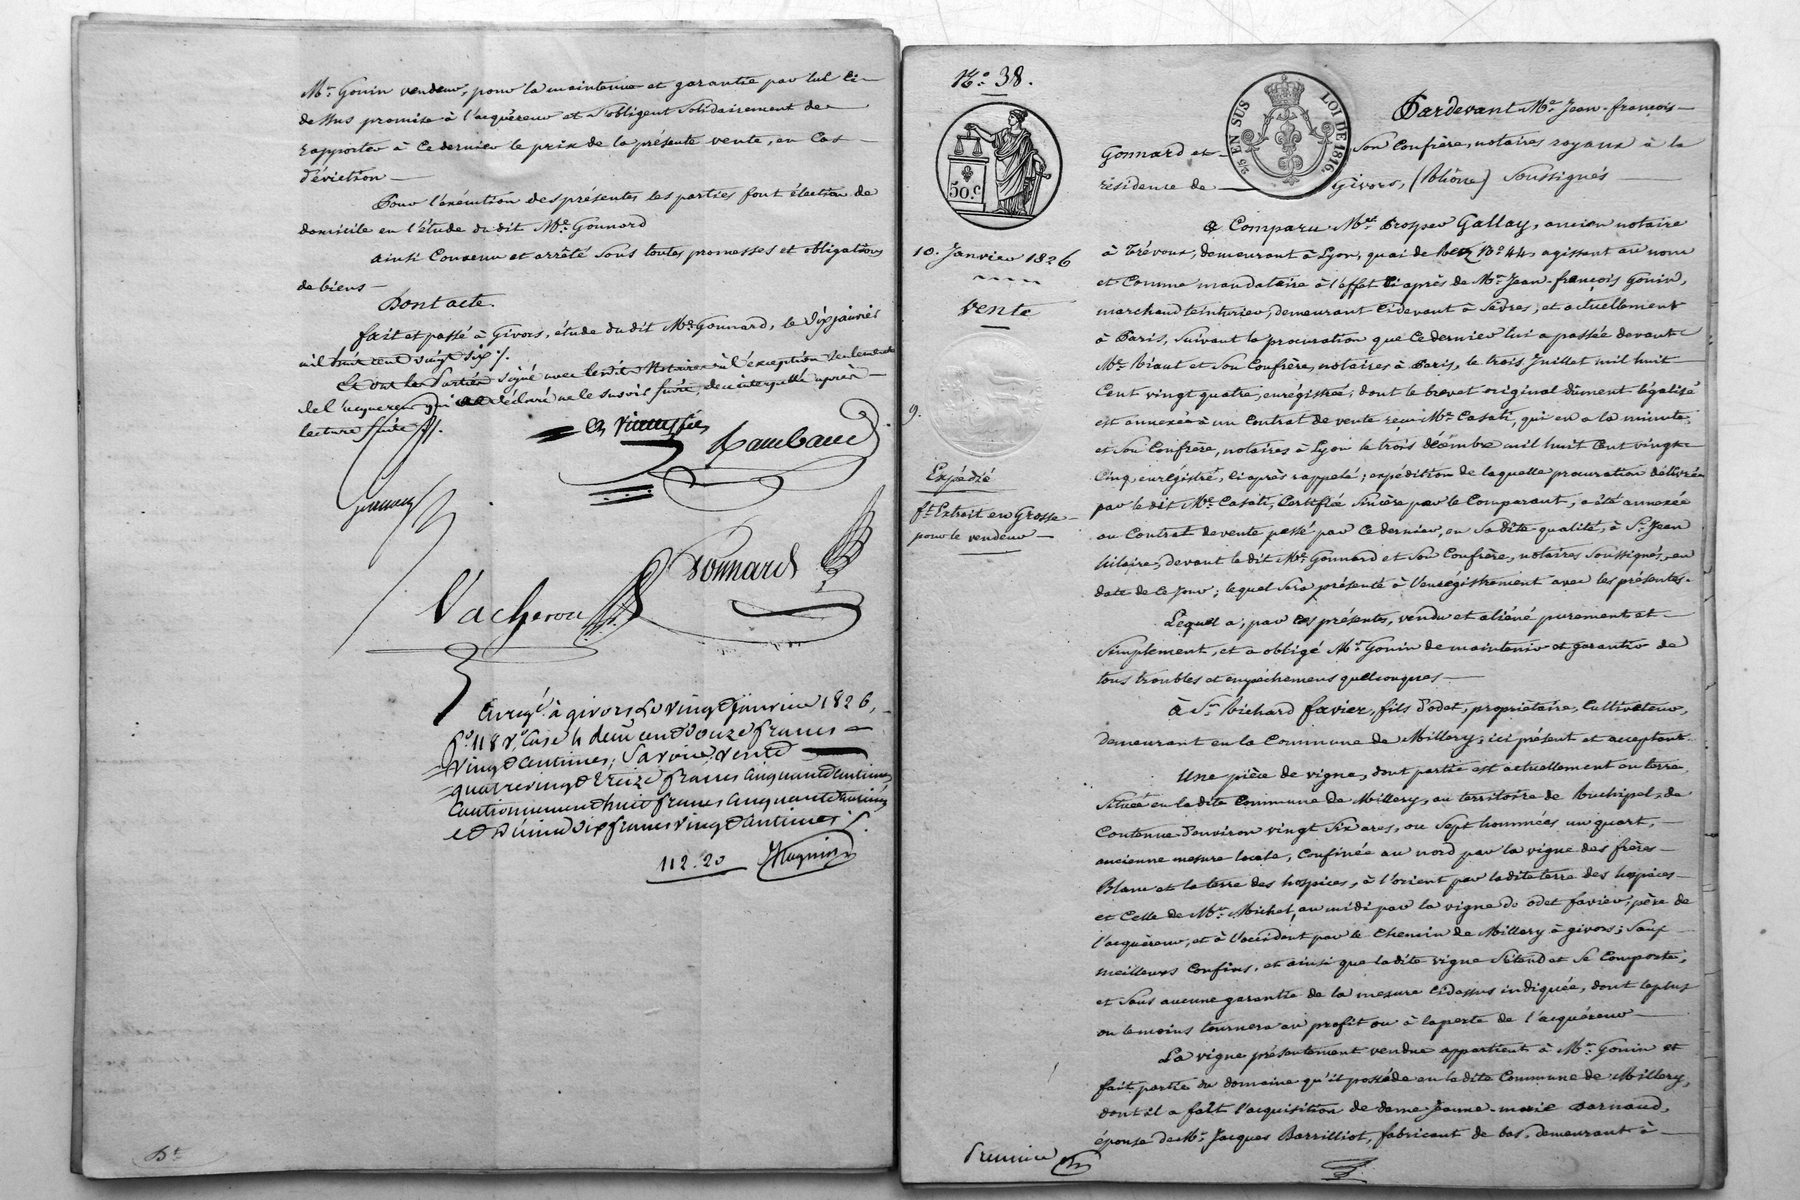 Mr. Gonin vendeur, pour la maintenue et garantie par lui ci-
dessus promise à l'acquéreur et s'obligent solidairement de
rapporter à ce dernier le prix de la présente vente, en cas
d'éviction
Pour l'exécution des présentes les parties font élection de
domicile en l'étude du dit Me. Gonnard
Ainsi convenu et arrêté sous toutes promesses et obligations
de biens
Dont acte.
fait et passé à Givors, étude du dit Me. Gonnard, le dix janvier
mil huit cent vingt six
Et ont les Parties signé avec lesdits Notaires à l'exception seulement
de l'acquéreur qui a déclaré ne le savoir faire, de ce interpellé après
lecture faite
Rambaud
Gonnard
Vacheron
Enregt. à givors le vingt janvier 1826,
fo. 118 vo. case 4 deux cent douze francs
vingt centimes; Savoir: vente
quatrevingt treize francs cinquante centimes
cautionnement huit francs cinquante centimes
et dixième dix francs vingt centimes
112.20
Dt
No. 38.
50.c
25 EN SUS
LOI DE 1816.
10. Janvier 1826
vente
9.
Expédié
ft. Extrait en Grosse
pour le vendeur
Pardevant Me. Jean-françois
Gonnard et son Confrère, notaires royaux à la
résidence de Givors, (Rhône) soussignés
a Comparu Mr. Prosper Gallay, ancien notaire
à Trévoux, demeurant à Lyon, quai de Retz No. 44, agissant au nom
et comme mandataire à l'effet ci après de Mr. Jean-françois Gonin,
marchand teinturier, demeurant cidevant à Sèvres, et actuellement
à Paris, suivant la procuration que ce dernier lui a passée devant
Me. Riant et son Confrère, notaires à Paris, le trois Juillet mil huit
Cent vingt quatre, enrégistrée, dont le brevet original dument légalisé
est annexé à un Contrat de vente reçu Me. Casati, qui en a la minute,
et son Confrère, notaires à Lyon le trois décembre mil huit cent vingt
Cinq, enrégistré, ci après rappelé; expédition de laquelle procuration délivrée
par le dit Me. Casati, certifiée sincère par le Comparant, a été annexée
au Contrat de vente passé par ce dernier, en sa dite qualité, à St. Jean
hilaire, devant le dit Me. Gonnard et son Confrère, notaires soussignés, en
date de ce jour; lequel sera présenté à l'enregistrement avec les présentes.
Lequel a, par ces présentes, vendu et aliéné purement et
simplement, et a obligé Mr. Gonin de maintenir et garantir de
tous troubles et empêchemens quelconques
à Sr. Richard favier, fils d'odet, propriétaire, Cultivateur,
demeurant en la Commune de Millery, ici présent et acceptant
Une pièce de vigne, dont partie est actuellement en terre,
située en la dite Commune de Millery, au territoire de Ruchipel, de
Contenue d'environ vingt six ares, ou sept hommées un quart,
ancienne mesure locale, confinée au nord par la vigne des frères
Blanc et la terre des hospices, à l'orient par ladite terre des hospices
et celle de Mr. Michel, au midi par la vigne de odet favier, père de
l'acquéreur, et à l'occident par le chemin de Millery à givors; sauf
meilleurs confins, et ainsi que la dite vigne s'étend et se comporte,
et sans aucune garantie de la mesure cidessus indiquée, dont le plus
ou le moins tournera au profit ou à la perte de l'acquéreur
La vigne présentement vendue appartient à Mr. Gonin et
fait partie du domaine qu'il possède en la dite Commune de Millery,
dont il a fait l'acquisition de dame Jeanne-marie Darnaud,
épouse de Mr. Jacques Barrilliot, fabricant de bas, demeurant à
Premier